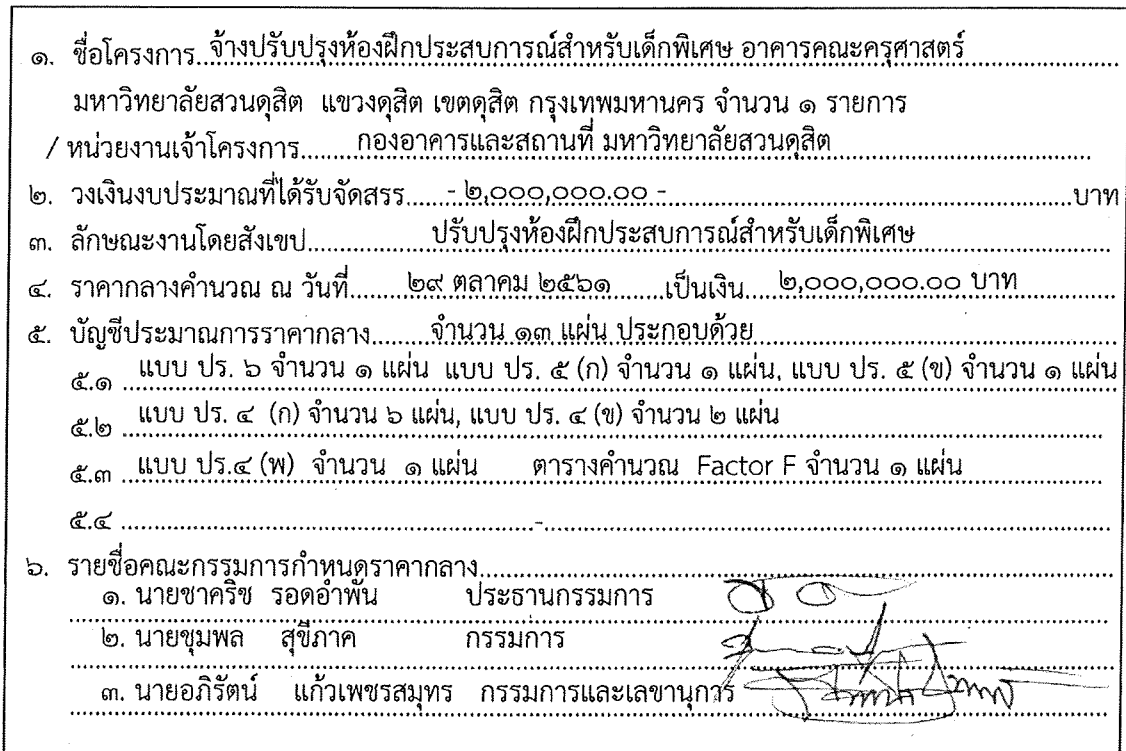 ๑. ชื่อโครงการ..จ้างปรับปรุงห้องฝึกประสบการณ์สำหรับเด็กพิเศษ อาคารคณะครุศาสตร์
มหาวิทยาลัยสวนดุสิต แขวงดุสิต เขตดุสิต กรุงเทพมหานคร จำนวน ๑ รายการ
/ หน่วยงานเจ้าโครงการ........กองอาคารและสถานที่ มหาวิทยาลัยสวนดุสิต
๒. วงเงินงบประมาณที่ได้รับจัดสรร.......- ๒,๐๐๐,๐๐๐.๐๐ -.......บาท
๓. ลักษณะงานโดยสังเขป........ปรับปรุงห้องฝึกประสบการณ์สำหรับเด็กพิเศษ
๔. ราคากลางคำนวณ ณ วันที่........๒๙ ตุลาคม ๒๕๖๑........เป็นเงิน.....๒,๐๐๐,๐๐๐.๐๐ บาท
๕. บัญชีประมาณการราคากลาง........จำนวน ๑๓ แผ่น ประกอบด้วย
๕.๑ แบบ ปร. ๖ จำนวน ๑ แผ่น แบบ ปร. ๕ (ก) จำนวน ๑ แผ่น, แบบ ปร. ๕ (ข) จำนวน ๑ แผ่น
๕.๒ แบบ ปร. ๔ (ก) จำนวน ๖ แผ่น, แบบ ปร. ๔ (ข) จำนวน ๒ แผ่น
๕.๓ แบบ ปร.๔ (พ) จำนวน ๑ แผ่น ตารางคำนวณ Factor F จำนวน ๑ แผ่น
๕.๔ ........-........
๖. รายชื่อคณะกรรมการกำหนดราคากลาง........
๑. นายชาคริช รอดอำพัน ประธานกรรมการ
๒. นายชุมพล สุขีภาค กรรมการ
๓. นายอภิรัตน์ แก้วเพชรสมุทร กรรมการและเลขานุการ